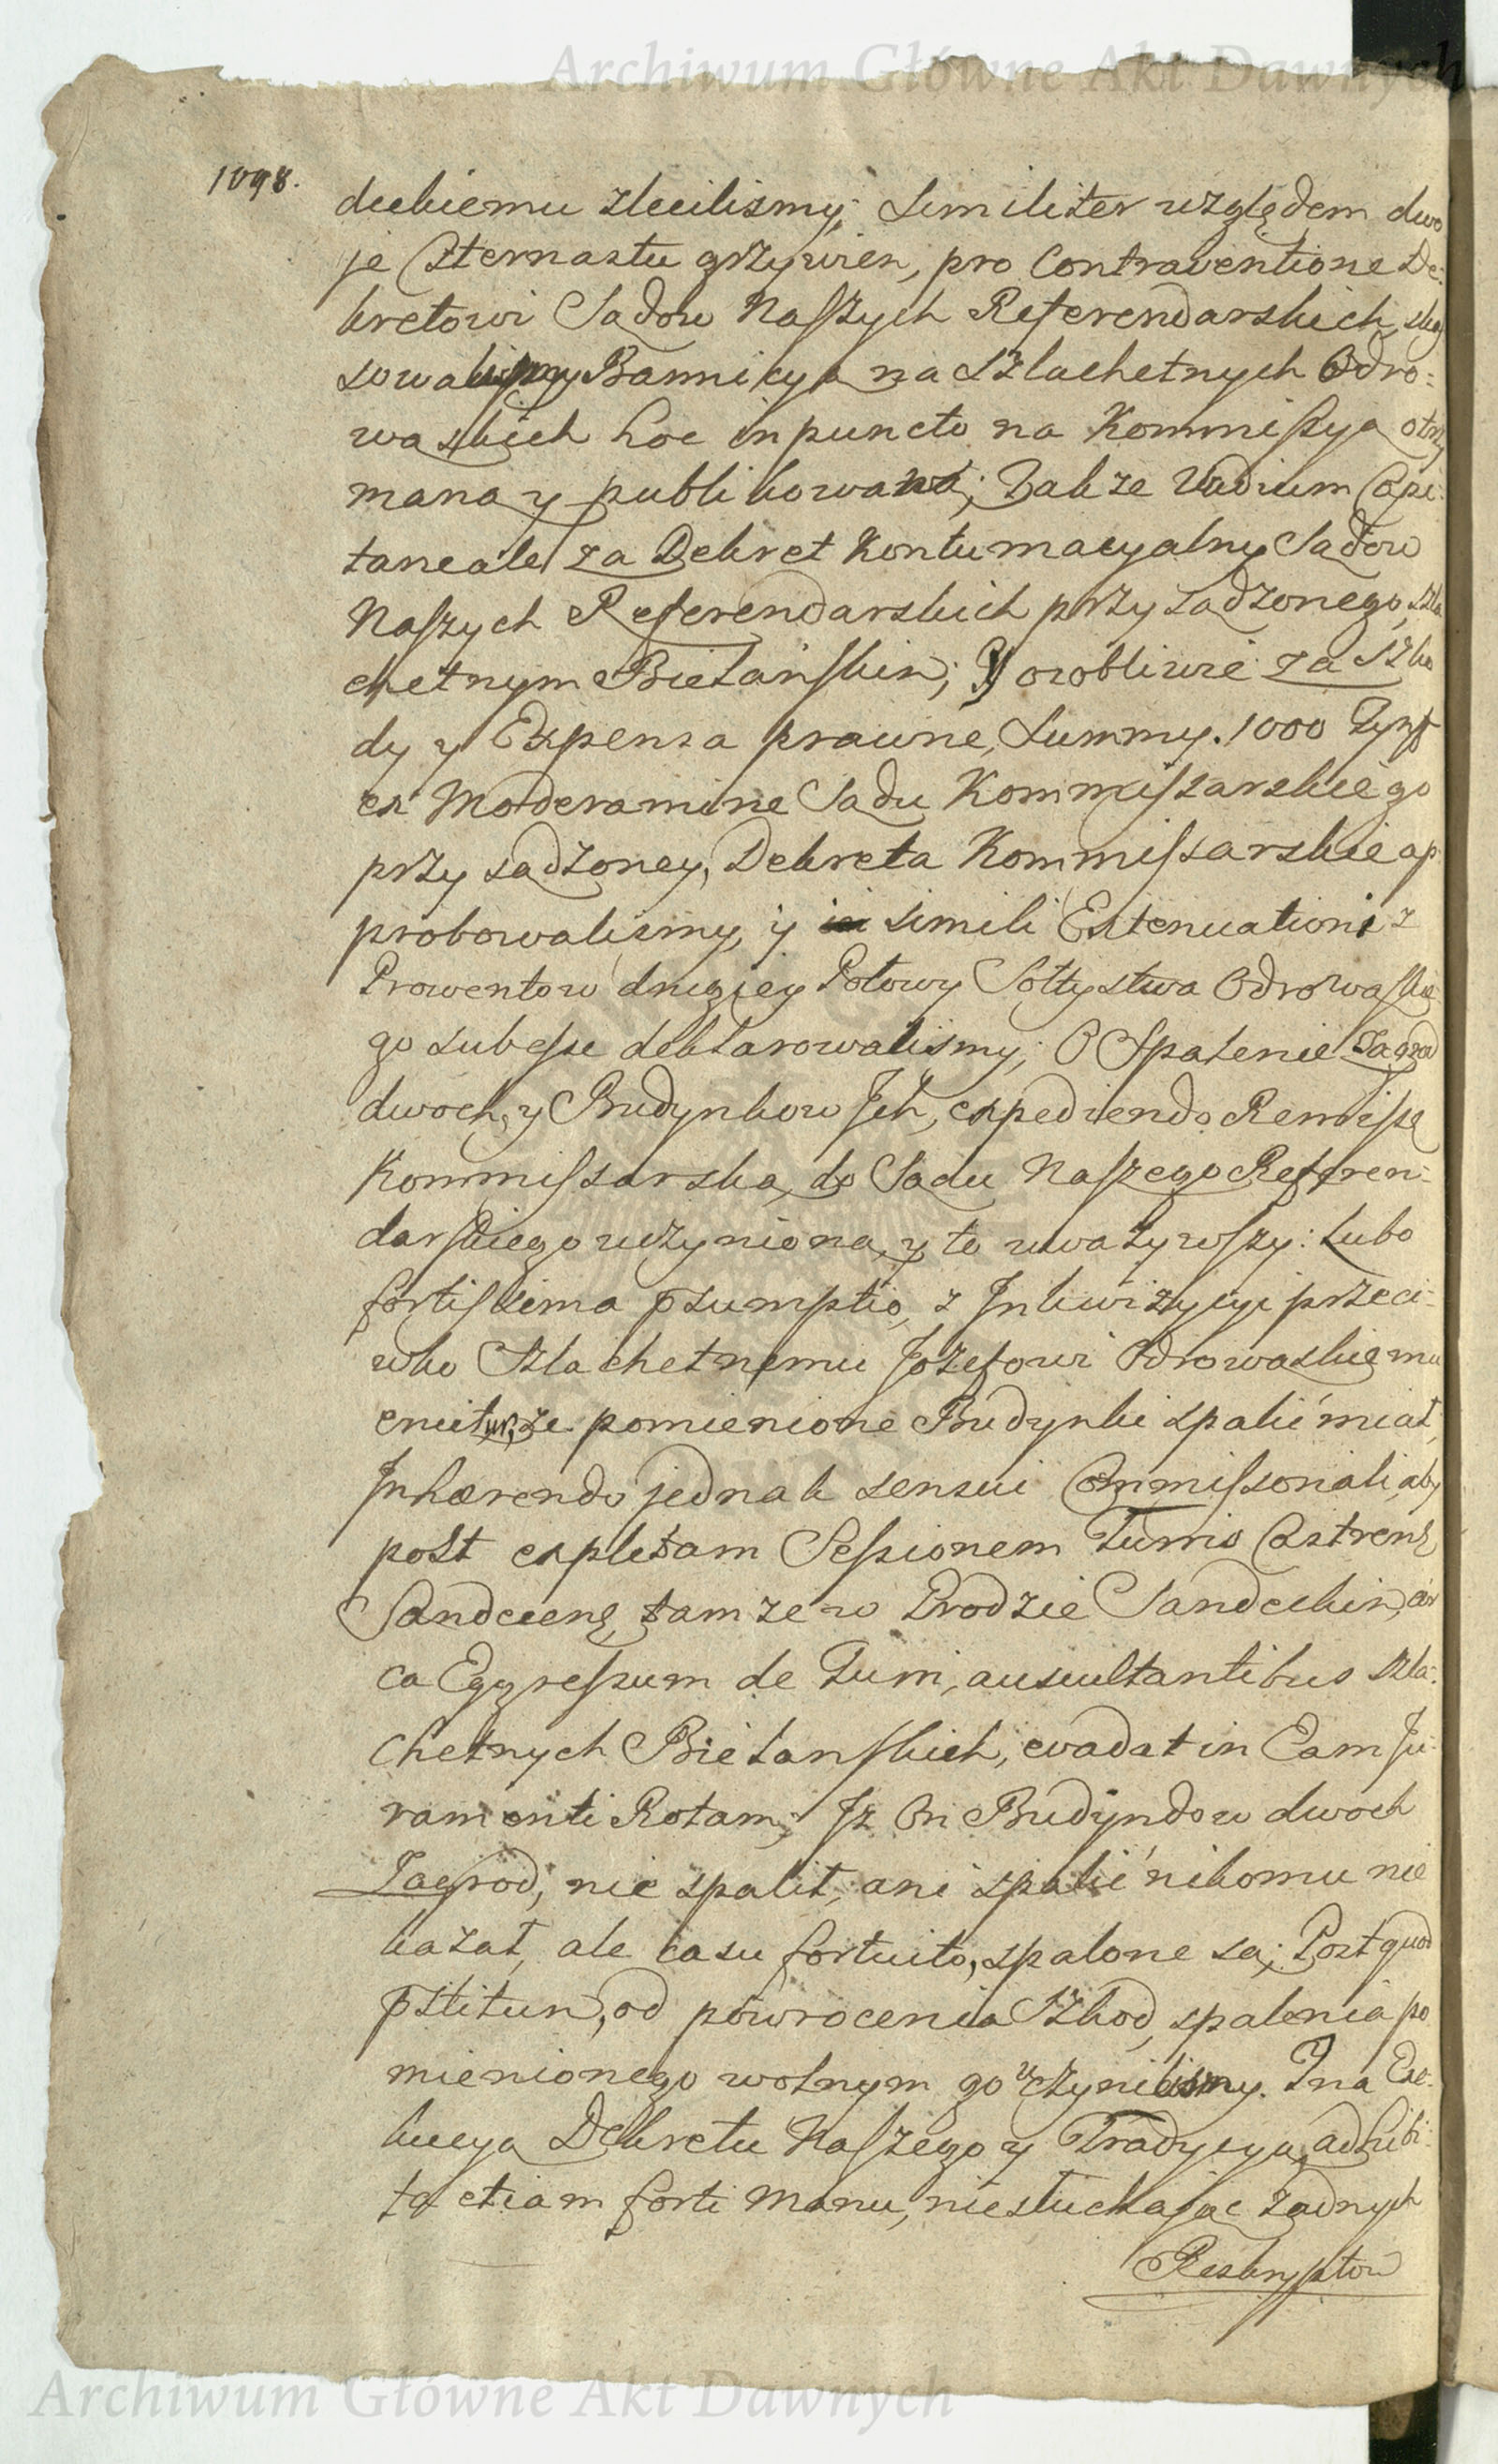 Archiwum Główne Akt Dawnych
1098.
deckiemu zleciliśmy; Similiter względem dwo
je Czternastu grzywien, pro Contraventione De:
kretowi Sądow Naszych Referendarskich, ska
sowaliśmy Bannicyą na Szlachetnych Odro:
wąskich hoc in puncto na Kommissyą otrzy
maną y publikowaną; Takze Vadium Capi:
taneale za Dekret Kontumacyalny Sądow
Naszych Referendarskich przysądzonego, szla
chetnym Bielańskim; Y osobliwie za Szko
dy y Expensa prawne, Summy. 1000 Tynf
ex Moderamine Sądu Kommissarskiego
przysądzoney, Dekreta Kommissarskie ap
probowaliśmy, y simili Extenuationi z
Prowentow drugiey Połowy Sołtystwa Odrowąskie
go subesse deklarowaliśmy; O Spalenie Zagrod
dwoch, y Budynkow Jch, expediendo Remissę
Kommissarską, do Sądu Naszego Referen:
darskiego uczynioną, y to uważywszy: Lubo
fortissima psumptio, z Jnkwizycyi przeci:
wko Szlachetnemu Jozefowi Odrowąskiemu
eruitur, że pomienione Budynki spalić miał,
Jnhærendo jednak sensui Commissoriali, aby
post expletam Sessionem Turris Castrens
Sandecens, tamze w Grodzie Sandeckim, cir
ca Egressum de Turri, auscultantibus Szla:
chetnych Bielanskich, evadat in Eam Ju:
ramenti Rotam; Jz On Budyndow dwoch
Zagrod, nie spalił, ani spalić nikomu nie
kazał, ale casu fortuito, spalone są; Post quod
pstitum, od powrocenia Szkod, spalenia po
mienionego wolnym go uczyniliśmy. Jna Exe:
kucyą Dekretu Naszego y Tradycyą, adhibi:
ta etiam forti Manu, niesłuchając żadnych
Reskryptow
Archiwum Główne Akt Dawnych